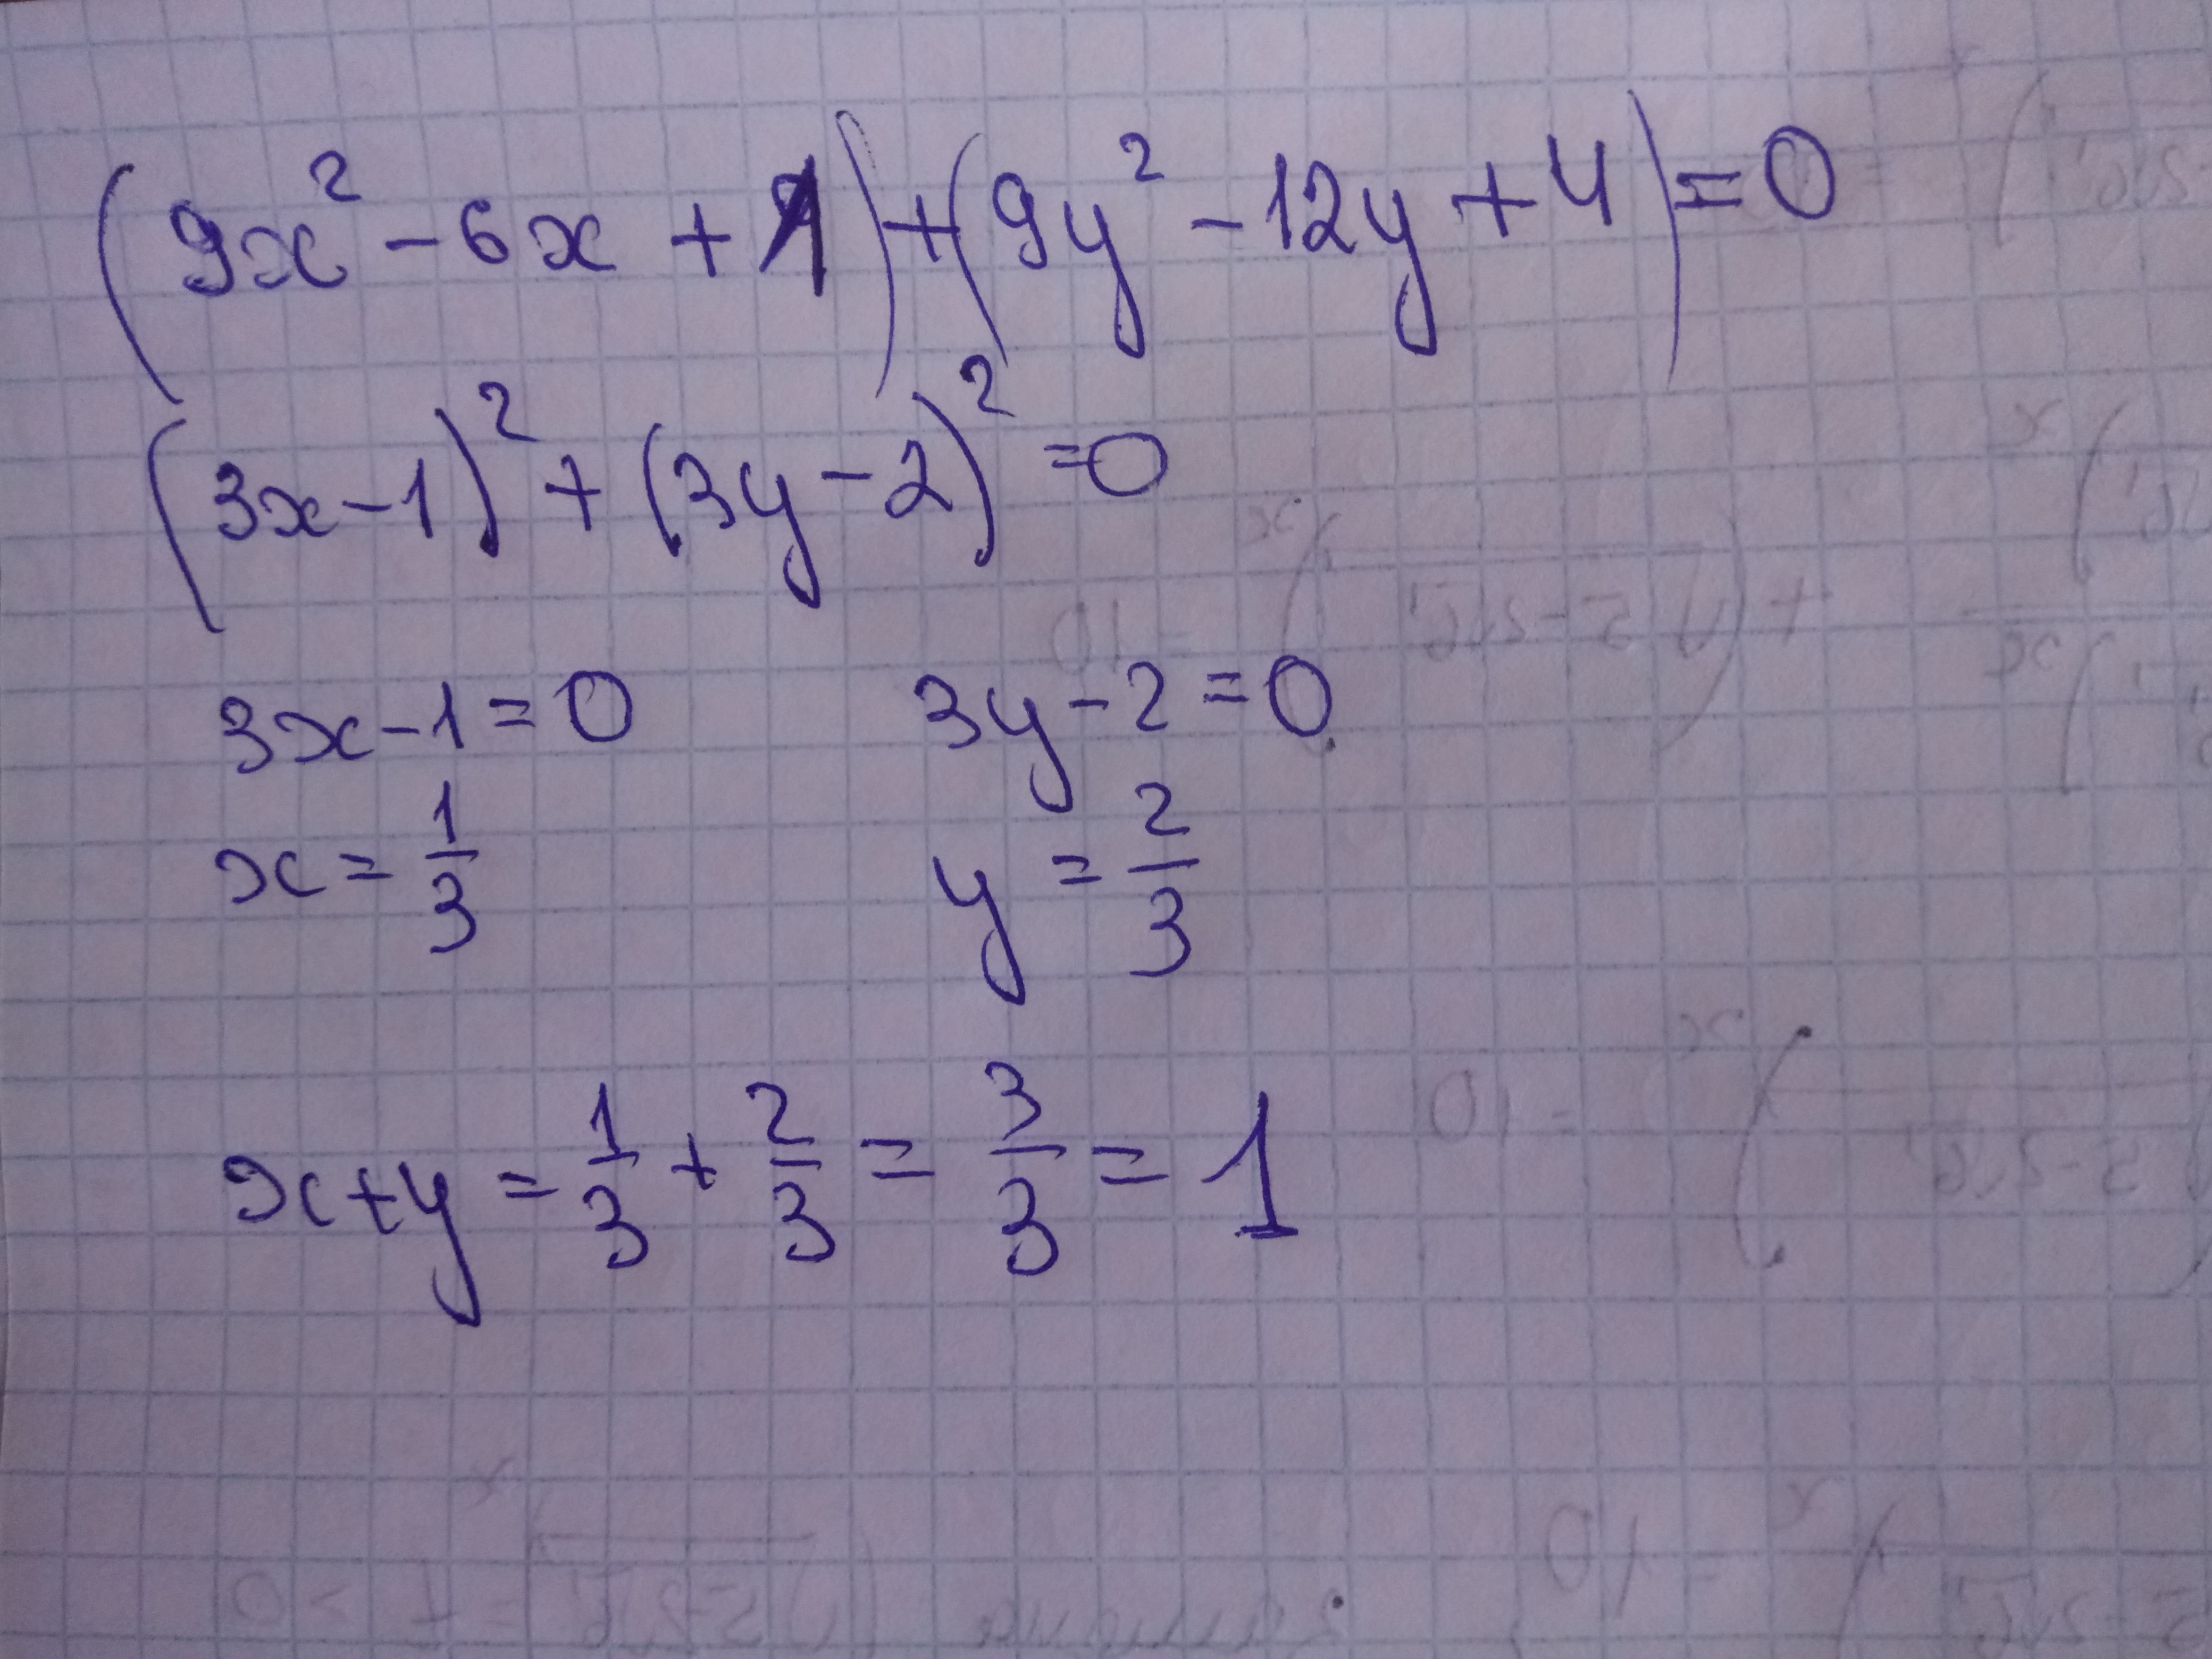 (9x² - 6x + 1) + (9y² - 12y + 4) = 0
(3x - 1)² + (3y - 2)² = 0
3x - 1 = 0    3y - 2 = 0
x = 1/3    y = 2/3
x + y = 1/3 + 2/3 = 3/3 = 1